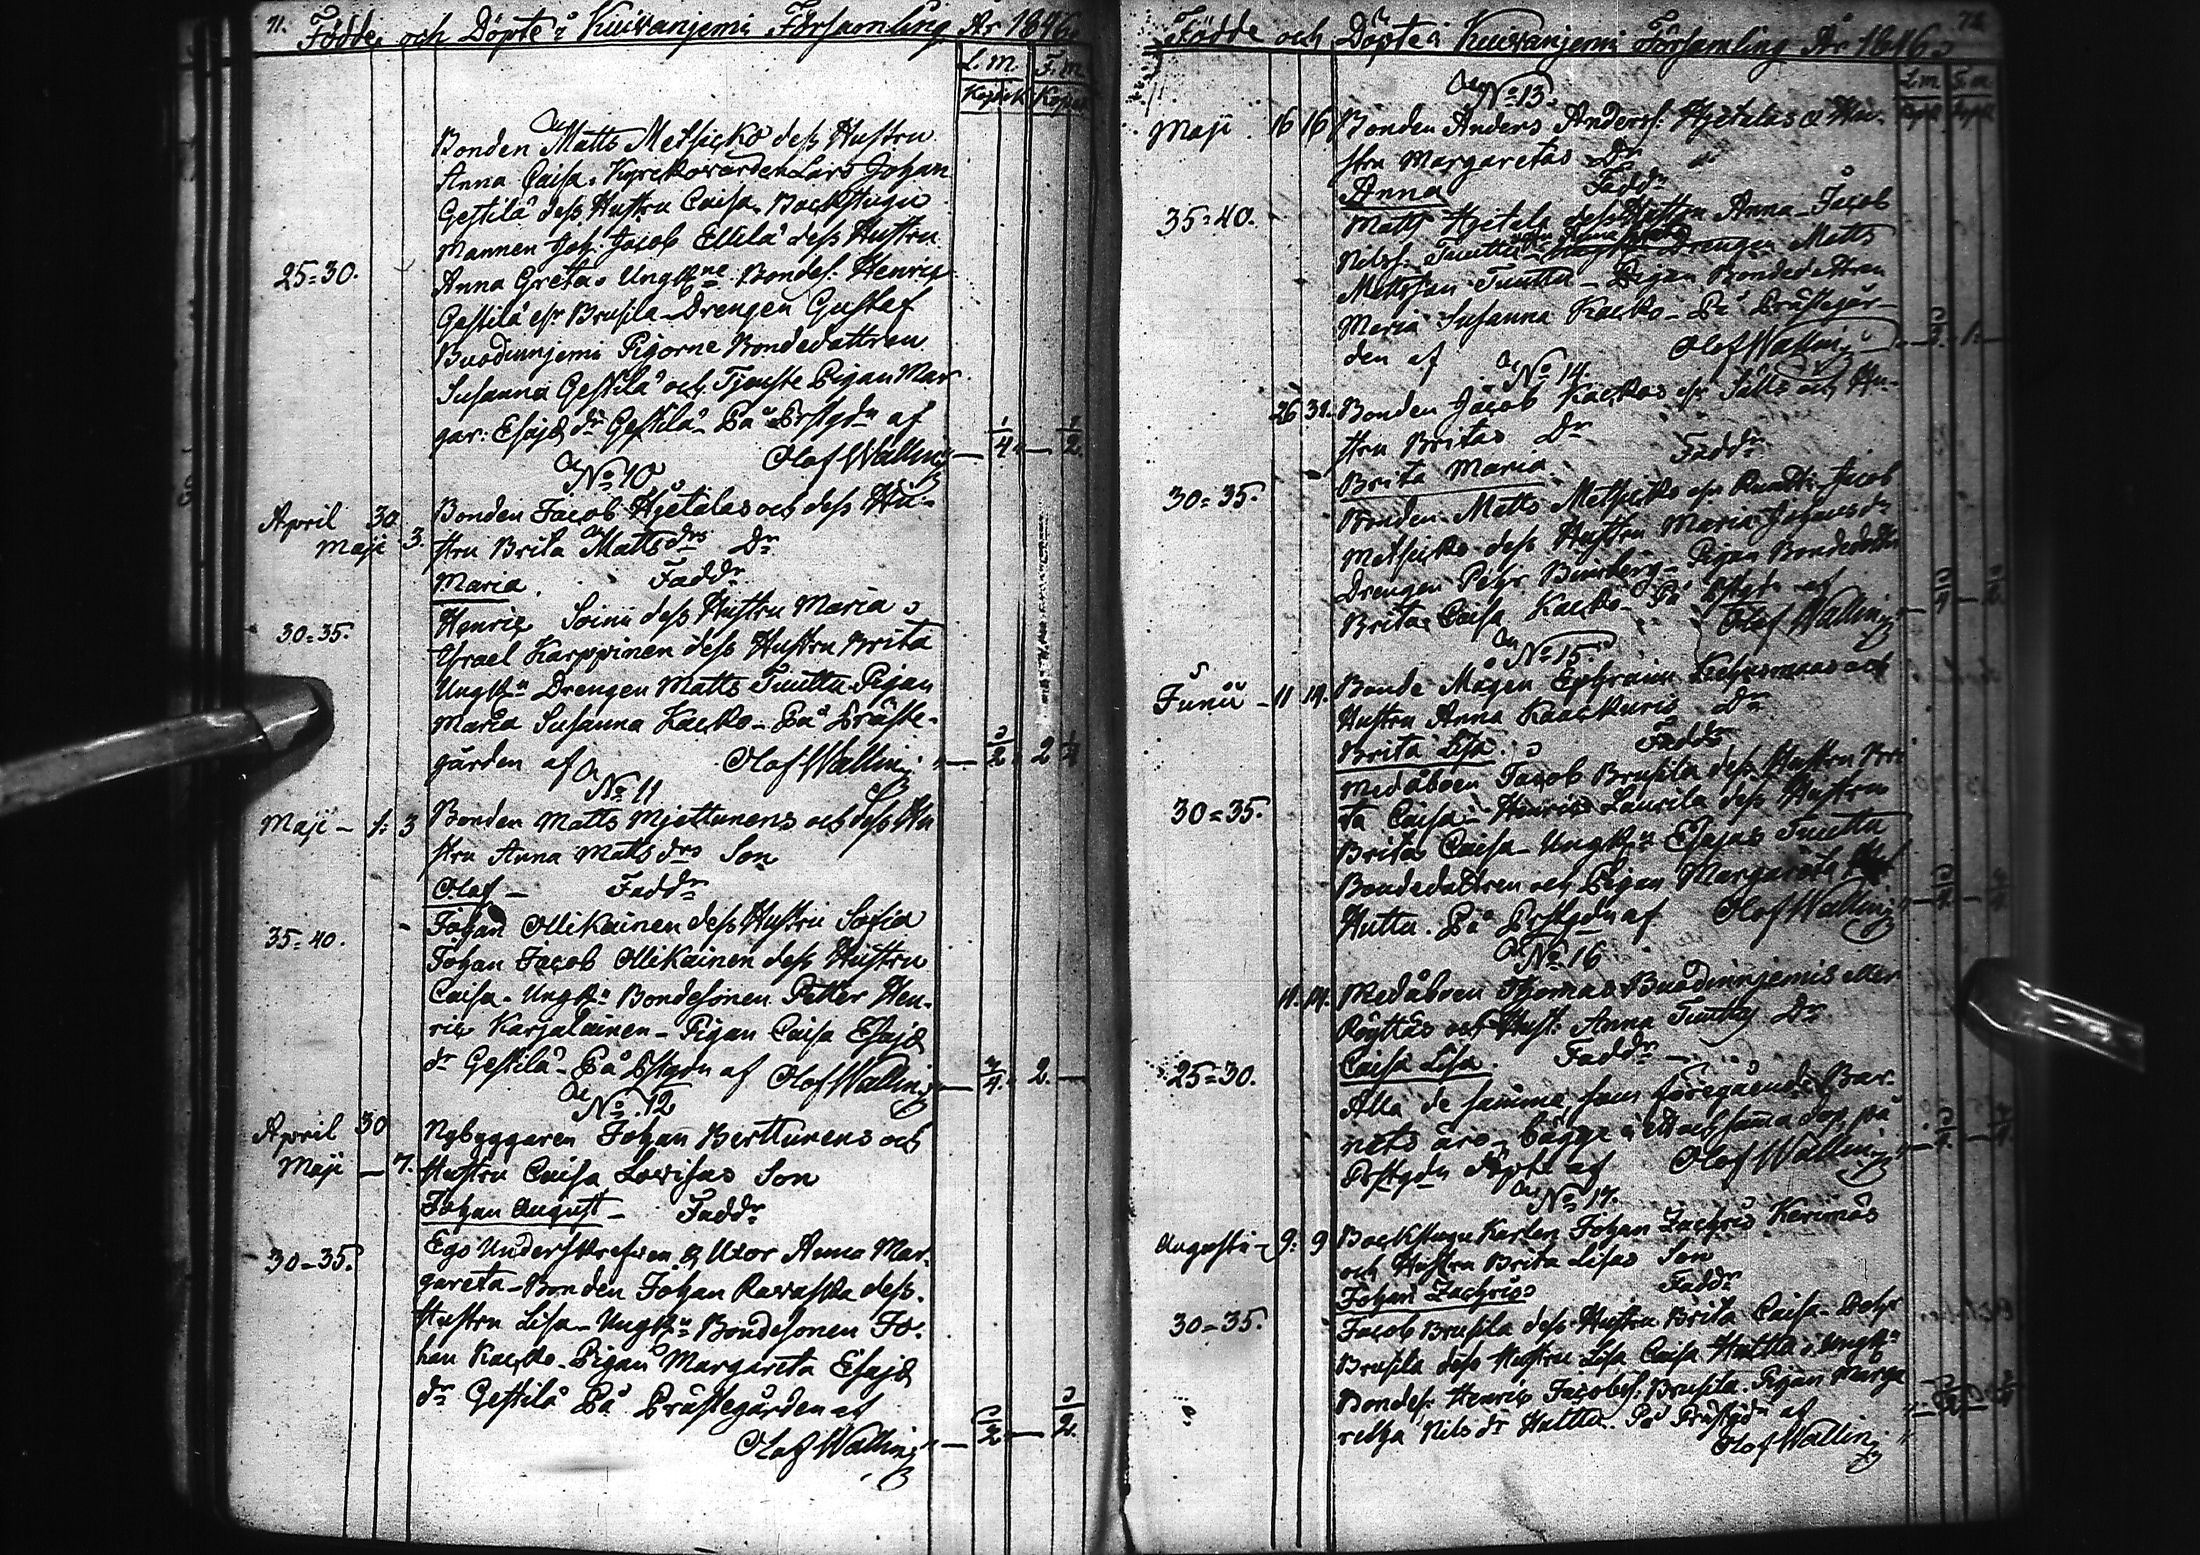 71. Födde och Döpte i Kuivanjemi Församling År 1846.
L. m. F. m.
Kopek Kopek
Bonden Matts Metsicko dess Hustru
Anna Caisa. Kyrckovärden Lars Johan
Gestilä dess Hustru Caisa, Backstugu
mannen Joh. Jacob Ellilä dess Hustru
25=30.
Anna Greta. Ungk:ne Bondes. Henric
Gestilä e:r Brusila Drengen Gustaf
Buodinnjemi Pigorne Bondedattren
Susanna Gestilä och Tjenste Pigan Mar
gar: Esaj& d:r Gestilä - På Prstgdn af
Olof Wallin 1/4 1/2
No 10
April 30
Maji 3.
Bonden Jacob Hjetalas och dess Hu-
stru Brita Matts drs Dr
Maria. Faddr
30=35.
Henric Soini dess Hustru Maria
Israel Karppinen dess Hustru Brita
Ungk:n Drengen Matts Tuuttu Pigan
Maria Susanna Kacko - På Präste-
gården af Olof Wallin
No 11
Maji - 1. 3
Bonden Matts Mjettunens och dess Hu
stru Anna Matts drs Son
Olof - Faddr
35=40.
Johan Ollikainen dess Hustru Sofia
Johan Jacob Ollikainen dess Hustru
Caisa - Ungk:n Bondesonen Petter Hen-
ric Karjalainen - Pigan Caisa Esaj&
dr Gestilä - På Pstgdn af Olof Wallin 3/4 2. -
No. 12
April 30
Maji - 7.
Nybyggaren Johan Berttunens och
Hustru Caisa Lovisas Son
Johan August - Faddr
30-35.
Ego Underskrefven & Uxor Anna Mar-
gareta - Bonden Johan Ravaska dess
Hustru Lisa - Ungk:n Bondesonen Jo-
han Kacko - Pigan Margareta Esaj&
dr Gestilä På Prästegården af
Olof Wallin
Födde och Döpte i Kuivanjemi Församling År 1846. 72
L. m. F. m.
No 13.
Maji 16 16
Bonden Anders Anderss: Hjetalas & Hu-
stru Margaretas Dr
Anna Faddr
35=40.
Matts Hjetala dess Hustru Anna - Jacob
Nilss. Tuuttu Drengen Matts
Mattsson Tuuttu - Pigan Bondedattren
Maria Susanna Kacko - På Prästegår-
den af Olof Wallin
No 14
26 31.
Bonden Jacob Kackos e:r Jälls och Hu-
stru Britas Dr
Brita Maria Faddr
30=35.
Bonden Matts Metsicko e:r Jacob
Metsicko dess Hustru Maria Johans dr
Drengen Pehr - Pigan Bondedattr
Brita Caisa Kacko - På Pstgdn af
Olof Wallin
No 15.
Junii - 11 14.
Bonde Mågen Ephraim och
Hustru Anna Kaackuris Dr
Brita Lisa. Faddr
30=35.
Medåboen Jacob Brusila dess Hustru Bri
ta Caisa - Henric Laurila dess Hustru
Brita Caisa - Ungk:n Esajas Tuuttu
Bondedattren och Pigan Margareta
Huttu. På Prstgdn af Olof Wallin
No 16
11. 14.
Medåboen Thomas Buodinnjemis eller
Röyttäs och Hust: Anna Tuuttus Dr
25=30.
Caisa Lisa. Faddr
Alla de samma som föregående Bar-
nets äro - bägge i ett och samma dop, på
Prstgdn döpte af Olof Wallin
No 17.
Augusti - 9. 9
Backstugu Karlen Johan Zachris Kerimäs
och Hustru Brita Lisas Son
Johan Zachris Faddr
30-35.
Jacob Brusila dess Hustru Brita Caisa - Pehr
Brusila dess Hustru Lisa Caisa Huttu. Ungk:n
Bondes. Henric Jacobss. Brusila. Pigan Marga
retha Nils dr Huttu. På Prästgdn af
Olof Wallin